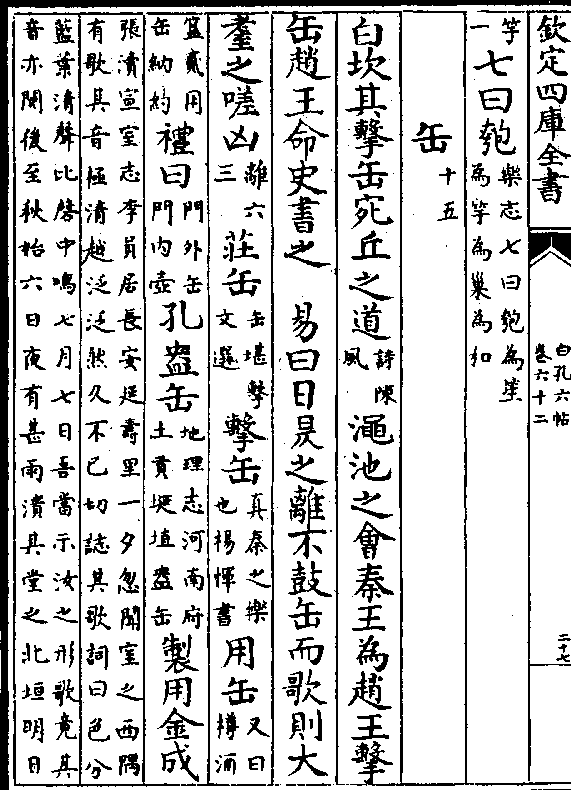 欽定四庫全書
白孔六帖
卷六十二
二十七
竽
一七曰匏樂志七曰匏為笙
為竽為巢為和
缶十五
白坎其擊缶宛丘之道詩陳
風澠池之㑹秦王為趙王擊
缶趙王命史書之　易曰日昃之離不鼓缶而歌則大
耋之嗟凶離六
三莊缶缶堪擊
文選擊缶真秦之樂
也楊惲書用缶又曰
樽酒
簋貳用
缶納約禮曰門外缶
門内壺孔盎缶地理志河南府
土貢埏埴盎缶製用金成
張瀆宣室志李員居長安延壽里一夕忽聞室之西隅
有歌其音極清越泛泛然久不已切誌其歌詞曰色分
藍葉清聲比磬中鳴七月七日吾當示汝之形歌竟其
音亦闋後至秋始六日夜有甚雨潰其堂之北垣明日